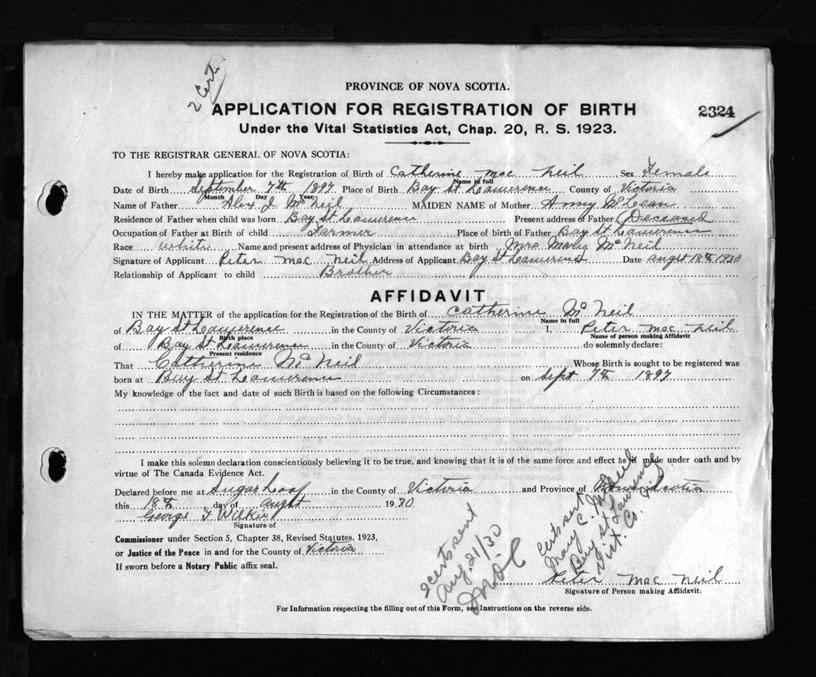 2 Cert.
PROVINCE OF NOVA SCOTIA.
APPLICATION FOR REGISTRATION OF BIRTH 2324
Under the Vital Statistics Act, Chap. 20, R. S. 1923.
TO THE REGISTRAR GENERAL OF NOVA SCOTIA:
I hereby make application for the Registration of Birth of Catherine Mac Neil Sex Female
Name in full
Date of Birth September 7th 1897 Place of Birth Bay St Lawrence County of Victoria
Month Day Year
Name of Father Alex J McNeil MAIDEN NAME of Mother McLean
Residence of Father when child was born Bay St Lawrence Present address of Father Deceased
Occupation of Father at Birth of child Farmer Place of birth of Father Bay St Lawrence
Race White Name and present address of Physician in attendance at birth Mrs Mary McNeil
Signature of Applicant Peter Mac Neil Address of Applicant Bay St Lawrence Date 18th 1930
Relationship of Applicant to child Brother
AFFIDAVIT
IN THE MATTER of the application for the Registration of the Birth of Catherine McNeil
Name in full
of Bay St Lawrence in the County of Victoria I, Peter Mac Neil
Birth place Name of person making Affidavit
of Bay St Lawrence in the County of Victoria do solemnly declare:
Present residence
That Catherine McNeil Whose Birth is sought to be registered was
born at Bay St Lawrence on Sept 7th 1897
My knowledge of the fact and date of such Birth is based on the following Circumstances:
I make this solemn declaration conscientiously believing it to be true, and knowing that it is of the same force and effect as if made under oath and by
virtue of The Canada Evidence Act.
Declared before me at Sugar Loaf in the County of Victoria and Province of Nova Scotia
this 18th day of 1930
George Wilkie
Signature of
Commissioner under Section 5, Chapter 38, Revised Statutes, 1923,
or Justice of the Peace in and for the County of Victoria
If sworn before a Notary Public affix seal.
2 certs sent
Aug. 21/30
Certs sent
Mary C. McNeil
Bay St Lawrence
Vict. Co.
Peter Mac Neil
Signature of Person making Affidavit.
For Information respecting the filling out of this Form, see Instructions on the reverse side.